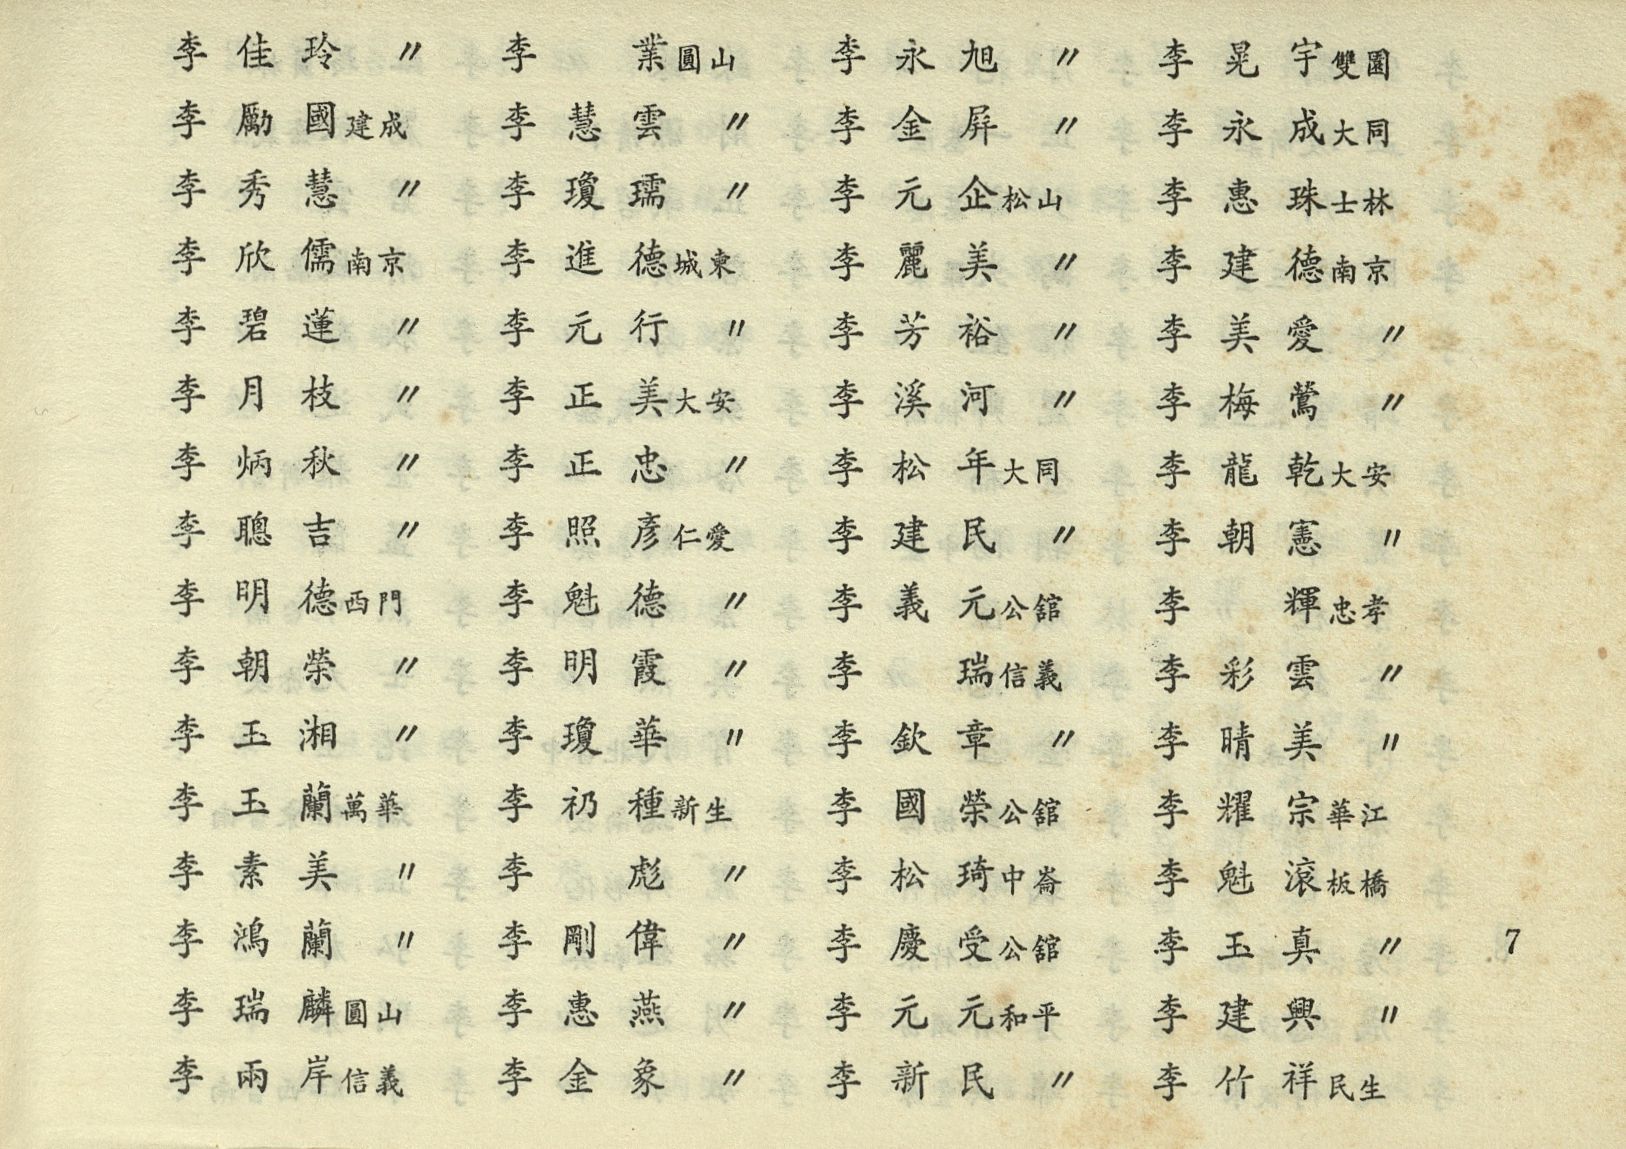 李佳玲 〃 李 業圓山 李永旭 〃 李晃宇雙園
李勵國建成 李慧雲 〃 李金屏 〃 李永成大同
李秀慧 〃 李瓊瓀 〃 李元企松山 李惠珠士林
李欣儒南京 李進德城東 李麗美 〃 李建德南京
李碧蓮 〃 李元行 〃 李芳裕 〃 李美愛 〃
李月枝 〃 李正美大安 李溪河 〃 李梅鶯 〃
李炳秋 〃 李正忠 〃 李松年大同 李龍乾大安
李聰吉 〃 李照彥仁愛 李建民 〃 李朝憲 〃
李明德西門 李魁德 〃 李義元公舘 李 輝忠孝
李朝榮 〃 李明霞 〃 李 瑞信義 李彩雲 〃
李玉湘 〃 李瓊華 〃 李欽章 〃 李晴美 〃
李玉蘭萬華 李礽種新生 李國榮公舘 李耀宗華江
李素美 〃 李 彪 〃 李松琦中崙 李魁滾板橋
李鴻蘭 〃 李剛偉 〃 李慶受公舘 李玉真 〃 7
李瑞麟圓山 李惠燕 〃 李元元和平 李建興 〃
李兩岸信義 李金象 〃 李新民 〃 李竹祥民生